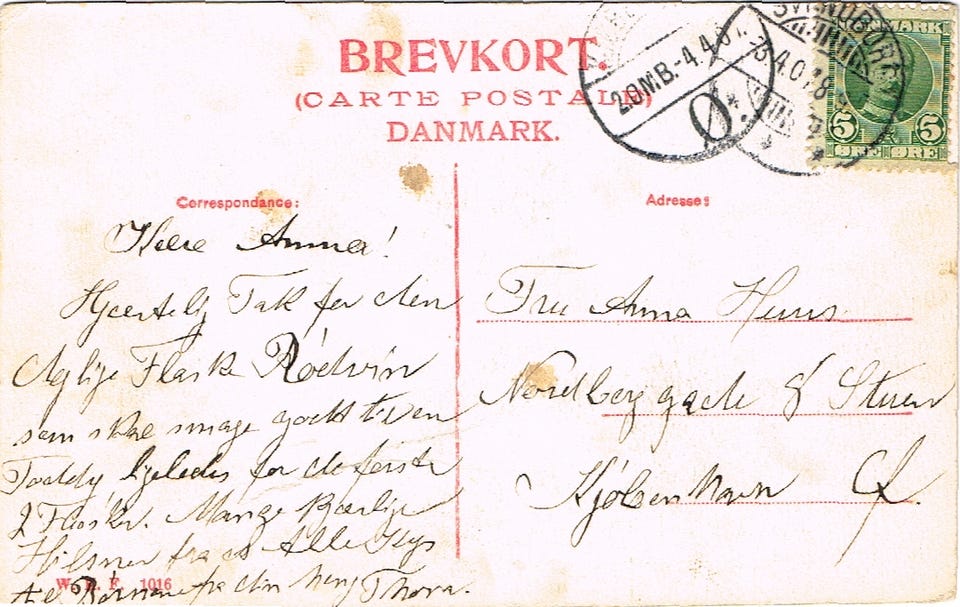 BREVKORT.
(CARTE POSTALE)
DANMARK.
20MB.-4.4.
Ø.
DANMARK
5 5
ØRE ØRE
Correspondance:
Kære Anna!
Hjærtelig Tak for den
dejlige Flaske Rødvin
som skal smage godt til en
Toddy ligeledes for de første
2 Flasker. Mange Kærlige
Hilsner fra os Alle
Børnene fra din Thora.
W. 1016
Adresse:
Fru Anna Huus
Nordberggade 8 Stuen
Kjøbenhavn